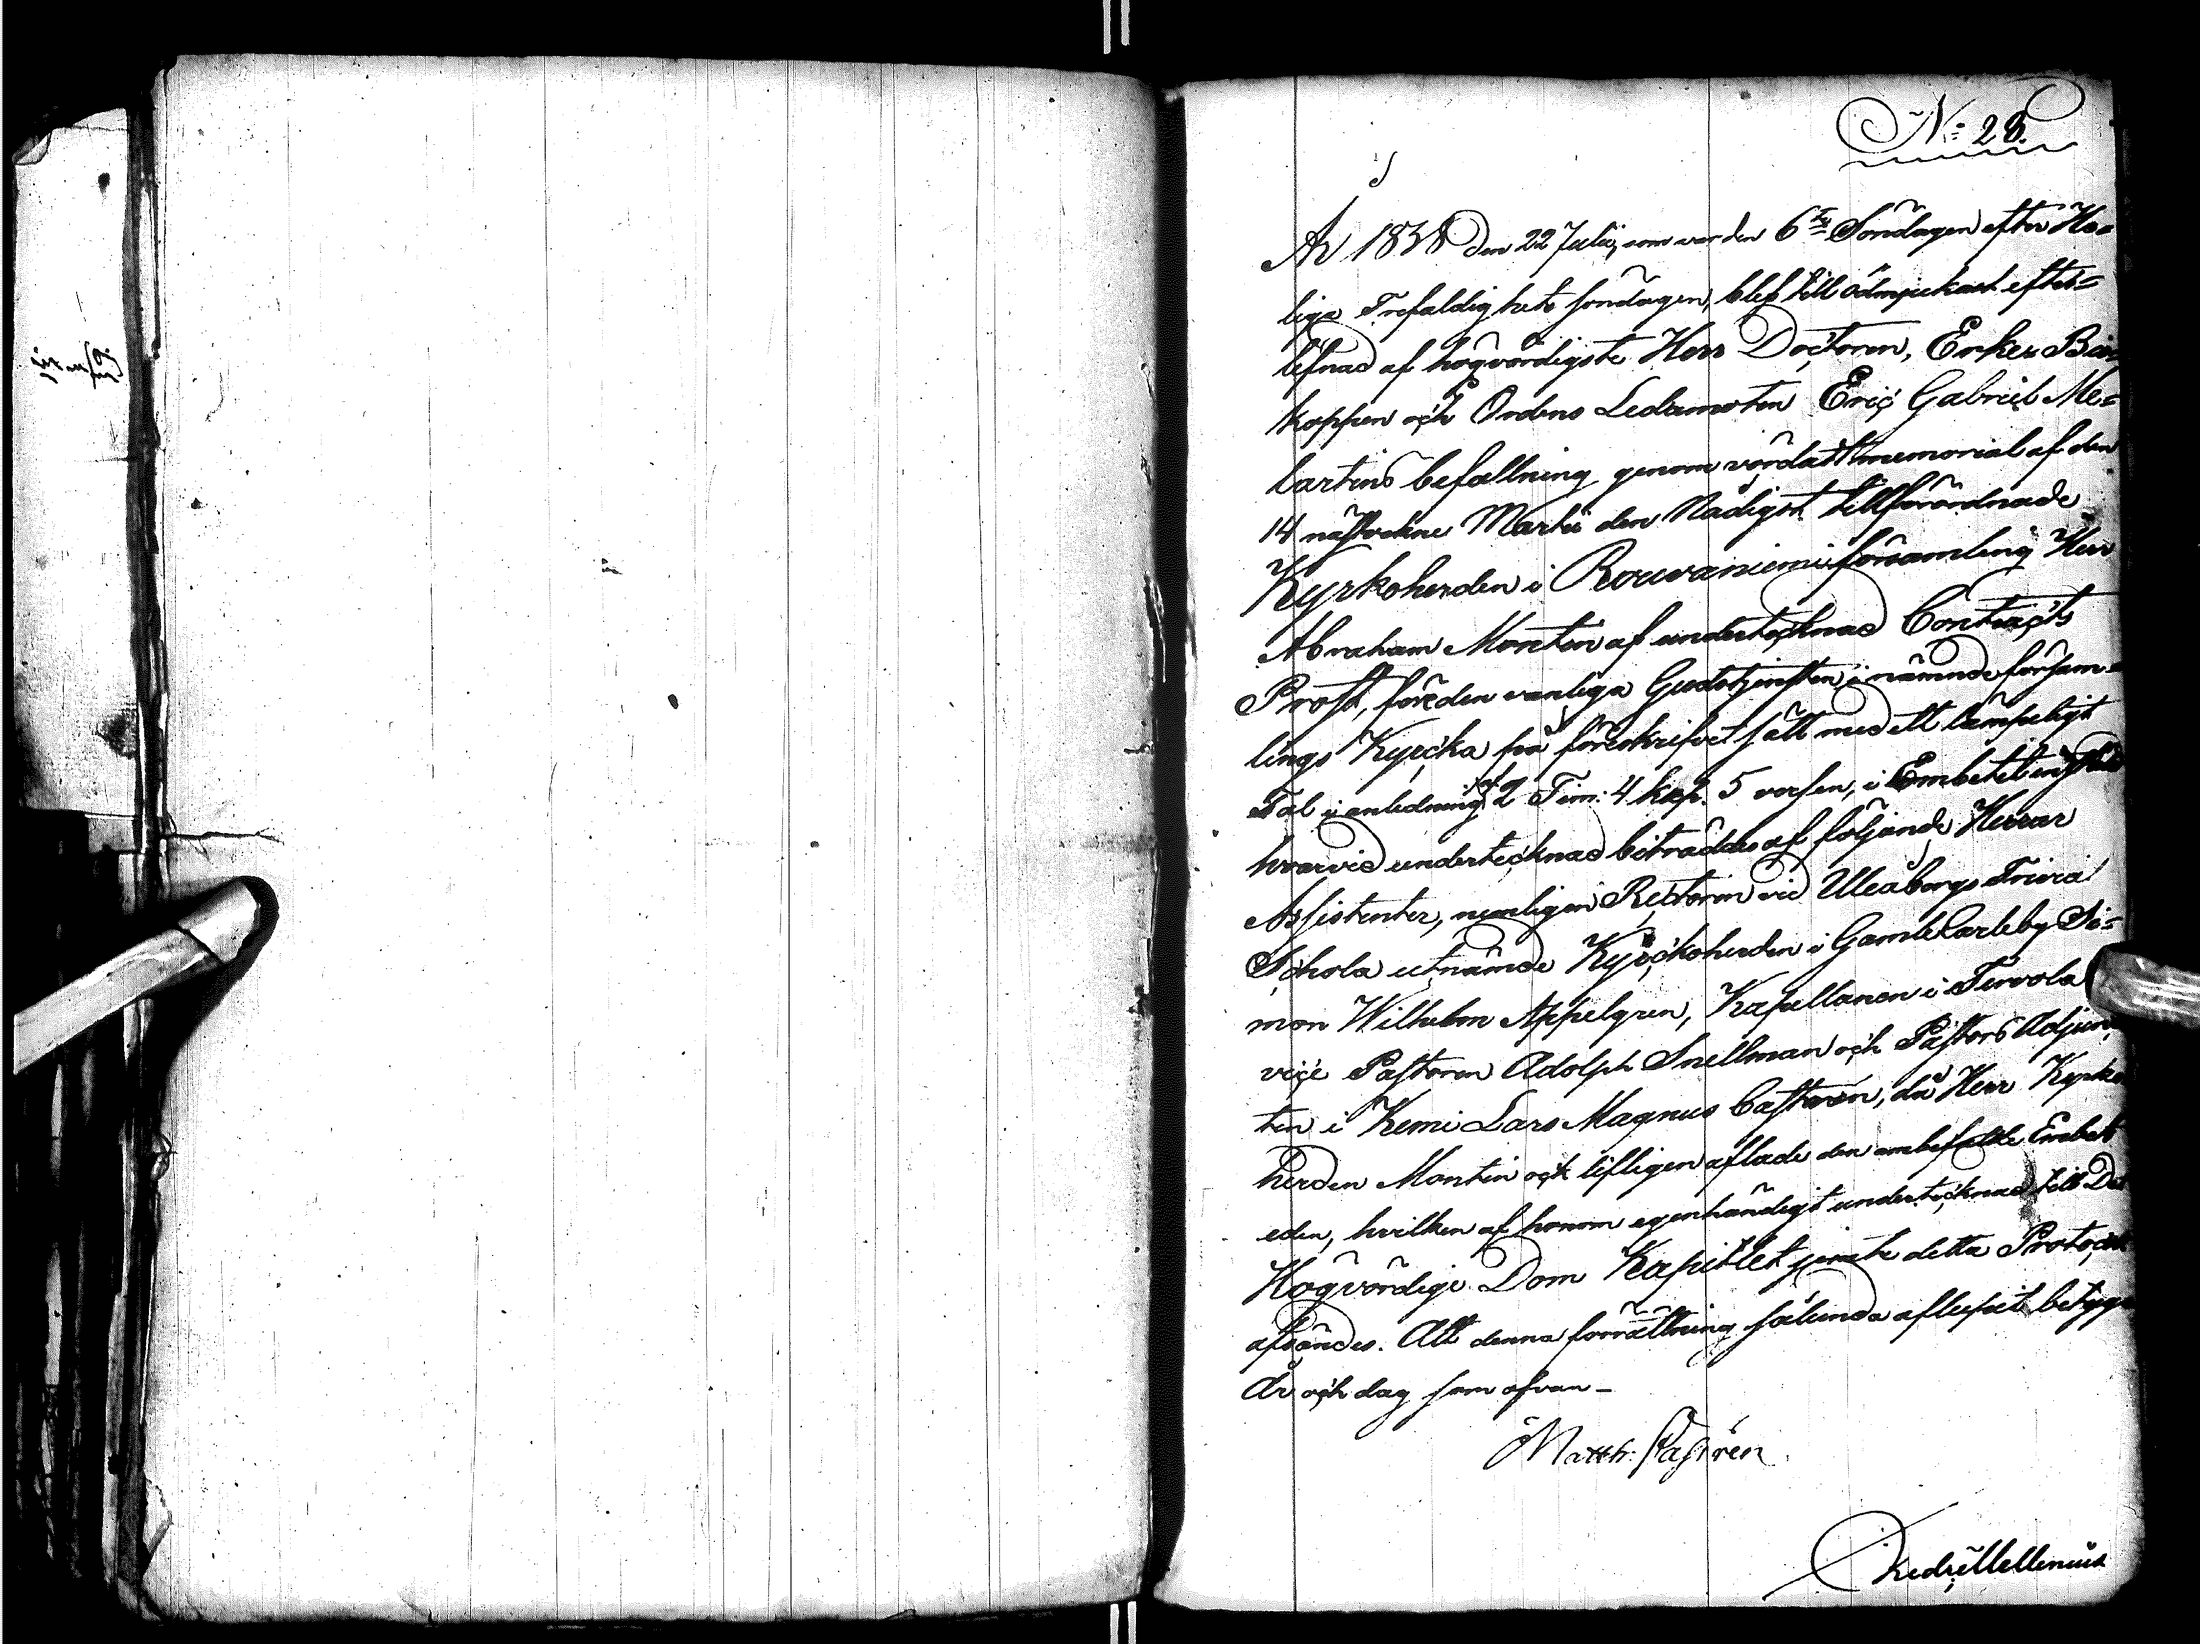 N:o 28.
År 1838 den 22 Julii, som var den 6te Söndagen efter He=
liga Trefaldighets söndagen, blef till ödmjukast efter=
lefnad af högvördigste Herr Doctoren, Erke Bis
koppen och Ordens Ledamoten Eric Gabriel Me=
lartins befallning genom vördadt memorial af den
14 nästvekne Martii den Nådigst tillförordnade
Kyrkoherden i Rouvaniemi församling Herr
Abraham Montin af undertecknad Contracts
Prost, före den vanliga Gudstjensten i nämnde församˍ
lings Kyrcka på föreskrifvet sätt med ett lämpeligt
Tal i anledning af 2 Tim: 4 kap. 5 versen, i Embetet
hvarvid undertecknad biträddes af följande Herrar
Assistenter, nemligen Rectorn vid Uleåborgs Trivial
Schola utnämde Kyrckoherden i GamleCarleby Si=
mon Wilhelm Appelgren, Kapellanen i Tervola
vice Pastoren Adolph Snellman och Pastors Adjunc
ten i Kemi Lars Magnus Castrén, då Herr Kyrko
herden Montin ock lifligen aflade den anbefallde Embets
eden, hvilken af honom egenhändigt undertecknad till Det
Högvördige Dom Kapitlet jemte detta Protocoll
afsändes. Att denna förrättning sålunda aflupit betygar
År och dag som ofvan_
Matth: Castrén